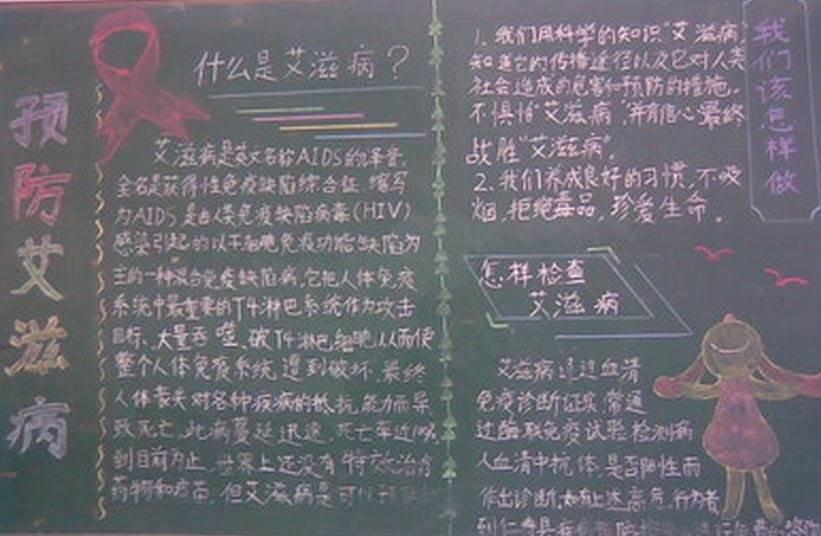 预防艾滋病
什么是艾滋病？
艾滋病是英文名称AIDS的译音，
全名是获得性免疫缺陷综合征，缩写
为AIDS，是由人类免疫缺陷病毒（HIV）
感染引起的以干细胞免疫功能缺陷为
主的一种混合免疫缺陷病，它把人体免疫
系统中最重要的T4淋巴系统作为攻击
目标，大量吞噬、破T4淋巴细胞从而使
整个人体免疫系统遭到破坏，最终
人体丧失对各种疾病的抵抗能力而导
致死亡。此病蔓延迅速，死亡率近
到目前为止，世界上还没有特效治疗
药物和疫苗，但艾滋病是可以预
我们该怎样做
1、我们用科学的知识“艾滋病”
知道它的传播途径以及它对人类
社会造成的危害和预防的措施。
不惧怕“艾滋病”并有信心最终
战胜“艾滋病”。
2、我们养成良好的习惯，不吸
烟，拒绝毒品，珍爱生命。
怎样检查
艾滋病
艾滋病通过血清
免疫诊断证实，常通
过酶联免疫试验检测病
人血清中抗体是否阳性而
作出诊断，如有上述高危行为者
到